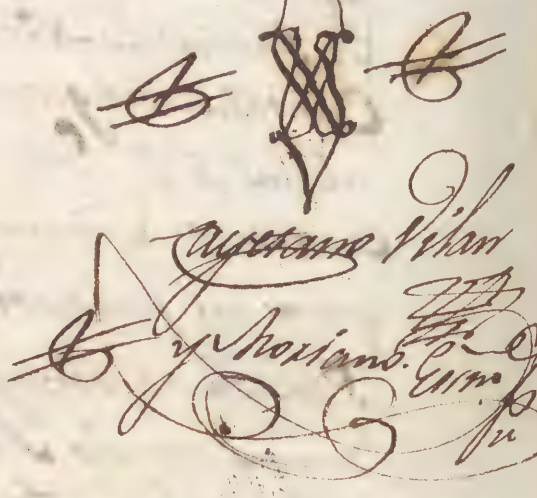 Cayetano Vilan
y Moriano. Essno